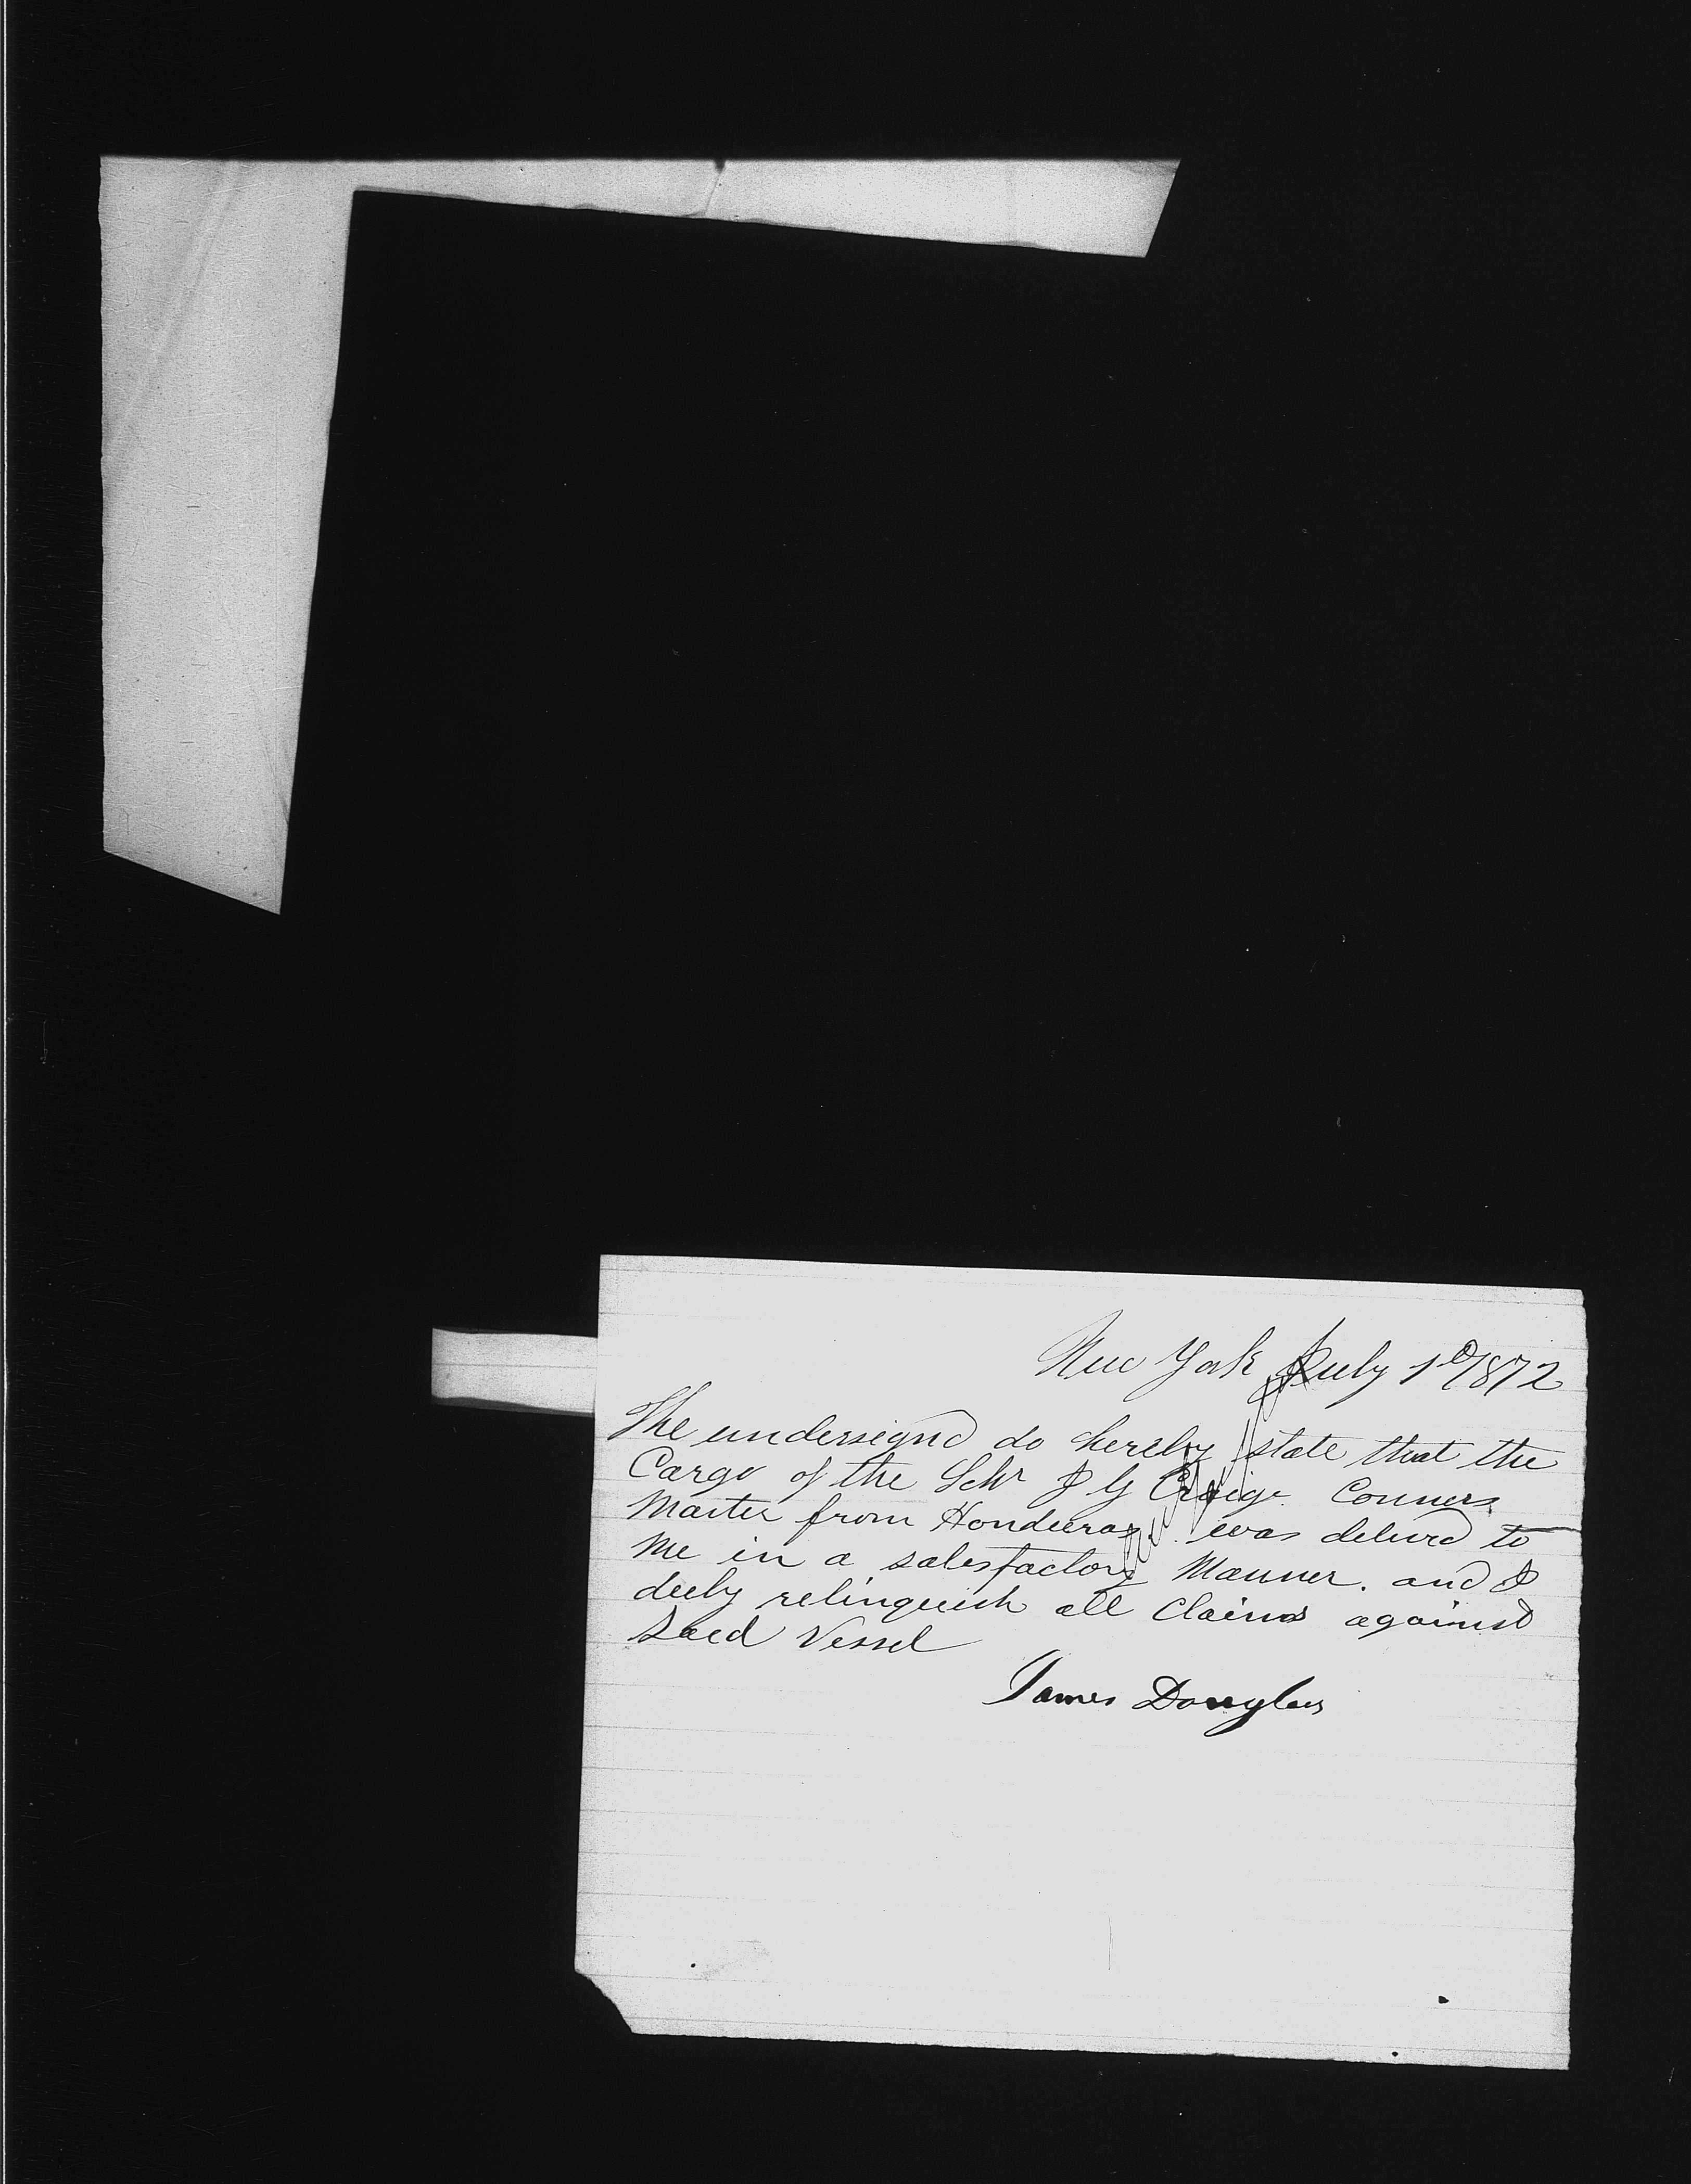 New York July 1st 1872
The undersignd do hereby state that the
Cargo of the Schr J G Craige Conners
Master from Honduras was deliverd to
me in a satesfactory Manner. and I
duly relinquish all Claims against
Said Vessel
James Douglas